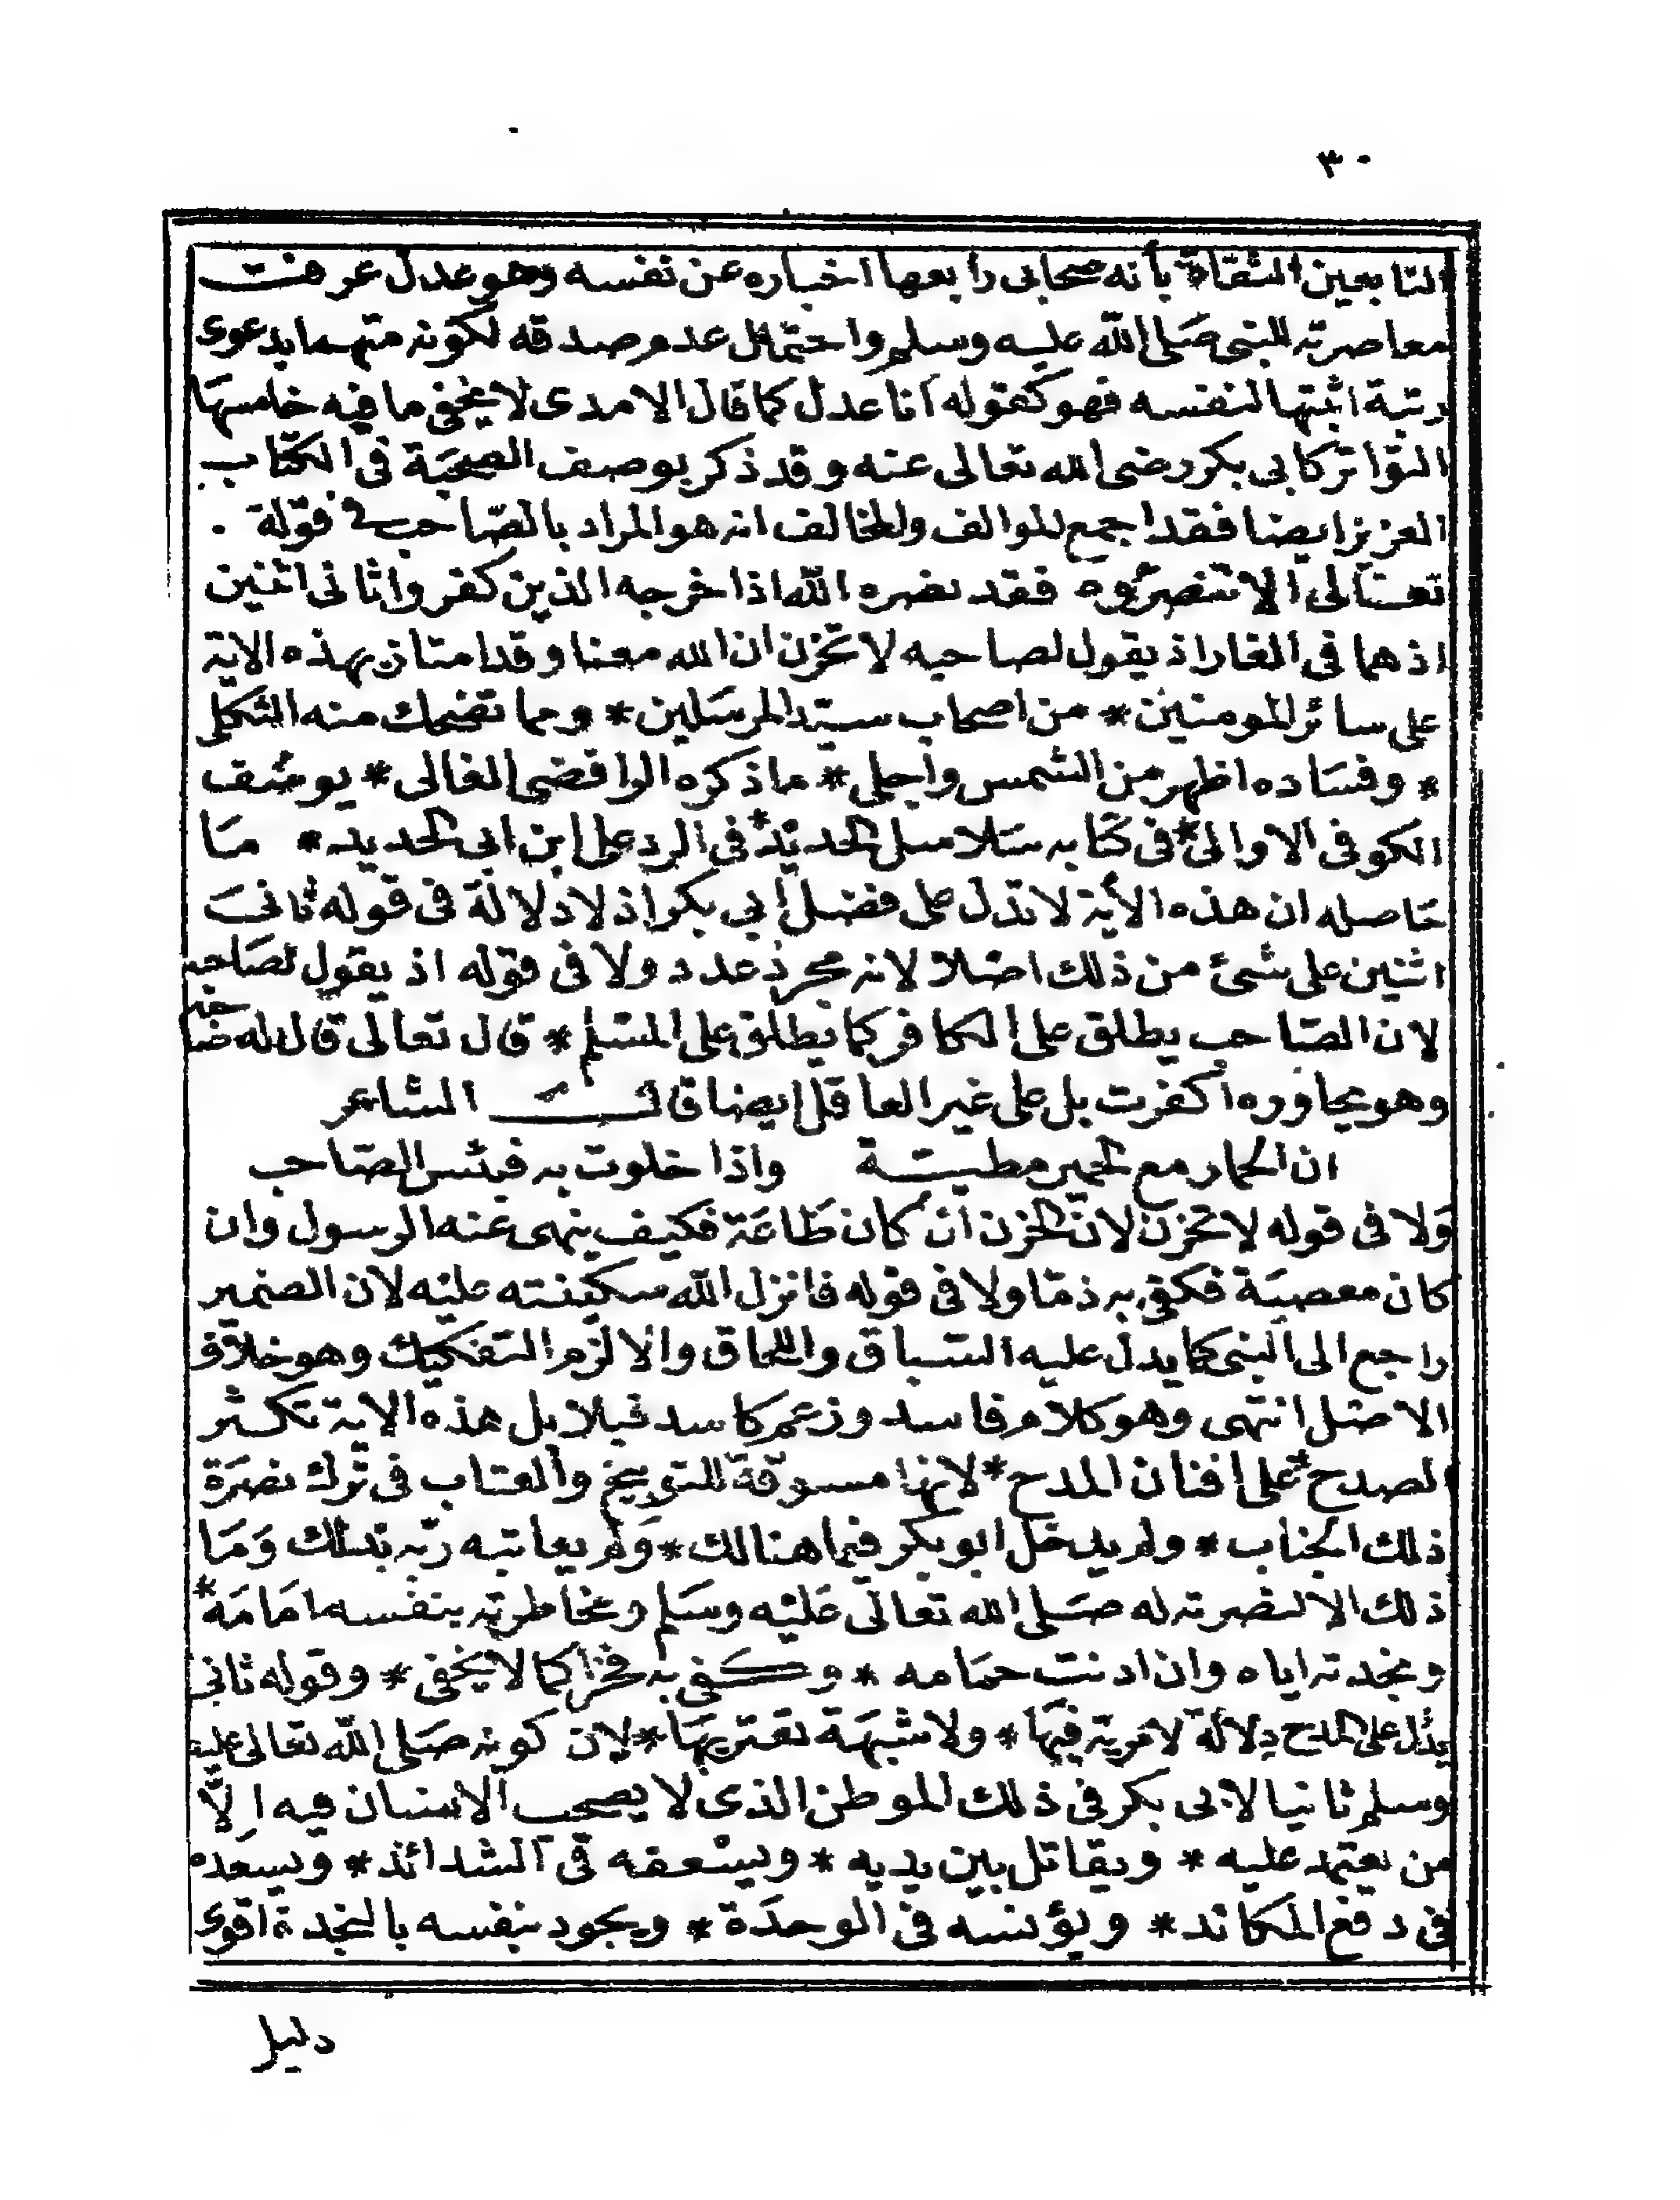 ٣٠
التابعين الثقاة بأنه صحابى رابعها اخباره عن نفسه وهو عدل عرفت
معاصرته للنبى صَلى الله عليه وسلم واحتمال عدم صدقه لكونه متهما بدعوى
رتبة اثبتها لنفسه فهو كقوله انا عدل كما قال الامدى لا يخفى ما فيه خامسهَا
التواتر كابى بكر رضى الله تعالى عنه وقد ذكر بوصف الصحبَة فى الكتاب
العزيز ايضا فقد اجمع الموالف والمخالف انه هو المراد بالصّاحب فى قوله
تعَالى الا تنصرُوه فقد نصره الله اذ اخرجه الذين كفروا ثانى اثنين
اذ هما فى الغار اذ يقول لصاحبه لا تحزن ان الله معنا وقد امتاز بهذه الاية
على سائر المومنين * من اصحاب سيّد المرسَلين * ومما تضحك منه الثكلى
* وفسَاده اظهر من الشمس واجلى * ما ذكره الرافضى الغالى * يوسُف
الكوفى الاوالى * فى كتابه سَلاسل الحديد * فى الرد على ابن ابى الحديد * مَا
حَاصله ان هذه الأية لا تدل على فضل أبى بكر اذ لا دلالة فى قوله ثانىَ
اثنين على شئ من ذلك اصَلا لانه مجرد عدد ولا فى قوله اذ يقول لصَاحبه
لان الصّاحب يطلق على الكافر كما يطلق على المسَلم * قال تعالى قال له صَاحبه
وهو يحاوره أكفرت بل على غير العاقل ايضا قالـَـ الشاعر
ان الحمار مع الحمير مطيـة واذا خلوت به فبئس الصّاحب
وَلا فى قوله لا تحزن لان الحزن ان كان طَاعَة فكيف ينهى عنه الرسول وان
كان معصيَة فكفى به ذمّا ولا فى قوله فانزل الله سكينته عليْه لان الضمير
راجع الى النبى كما يدل عليه السَباق واللحاق والا لزم التفكيك وهو خلاف
الاصَل انتهى وهو كلام فاسد وزعم كاسد فبلا بل هذه الاية تكثر
الصدح * على افنان المدح * لانها مسوقة للتوبيخ والعتاب فى ترك نصَرة
ذلك الجناب * ولم يدخل ابو بكر فيما هنالك * وَلم يعاتبه ربّه بذلك وَمَا
ذلك الا لنصرته له صَلى الله تعالى عَليْه وسَلم ومخاطرته بنفسه امَامَه *
ونجدته اياه وان ادنت حمَامه * وكفى به فخرًا كما لا يخفى * وقوله ثانى
يدُل على المدح دِلالة لا مرية فيهَا * ولا شبهَة تعتريهَا * لان كونه صَلى الله تعالى عليه
وسلم ثانيا لابى بكر فى ذلك الموطن الذى لا يصحب الانسان فيه اِلّا
من يعتمد عليه * ويقاتل بين يديه * ويسْعفه فى الشدائد * ويسعده
فى دفع المكائد * ويؤنسه فى الوحدَة * ويجود بنفسه بالنجدة اقوى
دليل